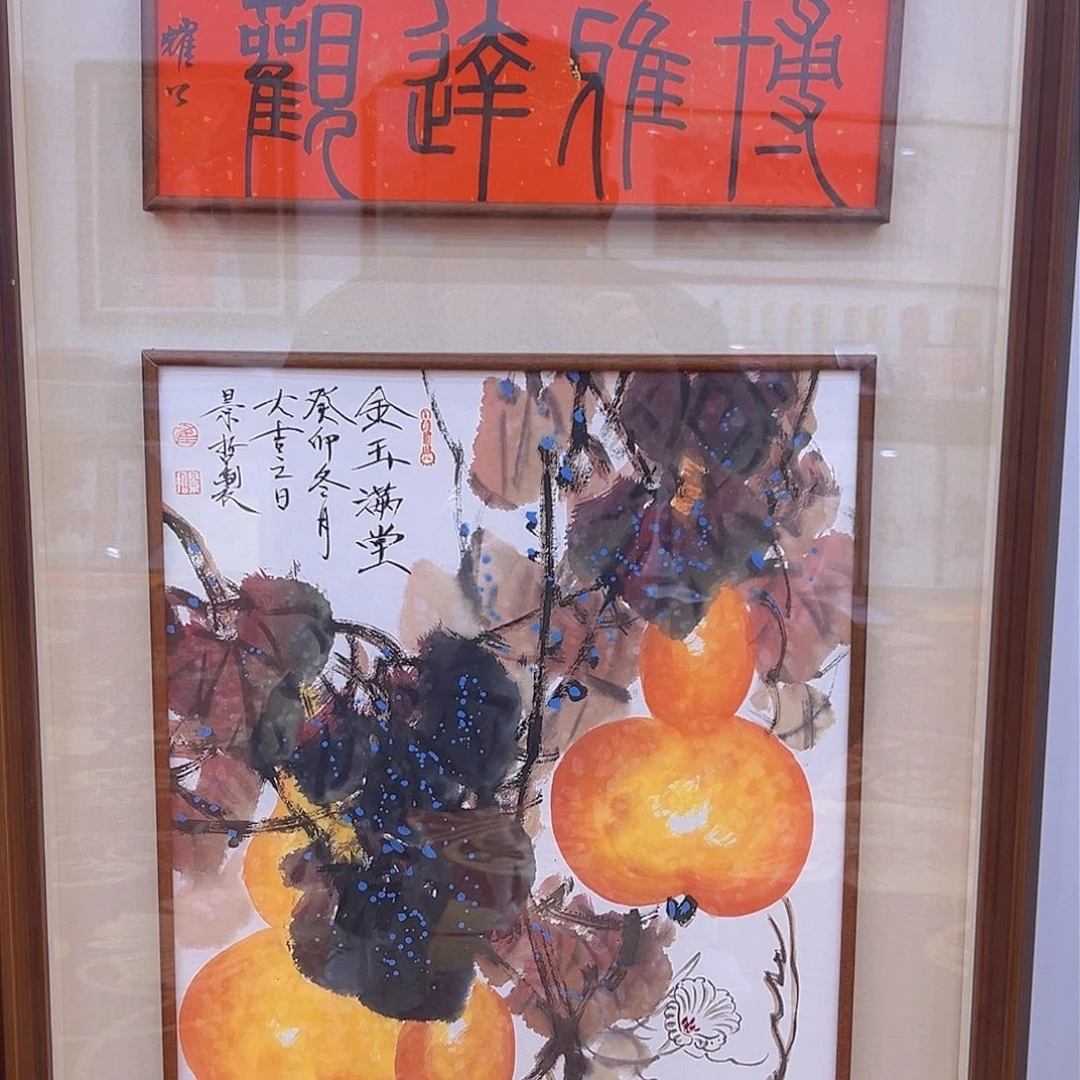 博雅達觀
耀
金玉滿堂
癸卯冬月
大吉之日
景哲製